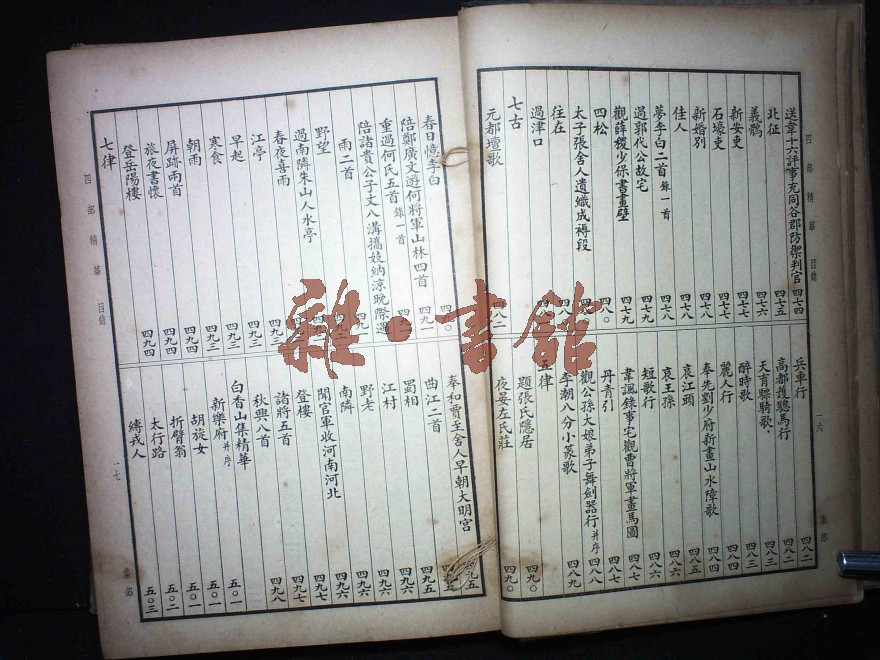 四部精華 目錄
一六
集部
送韋十六評事充同谷郡防禦判官 四七四
北征 四七五
義鶻 四七六
新安吏 四七七
石壕吏 四七七
新婚別 四七八
佳人 四七八
夢李白二首 錄一首 四七九
過郭代公故宅 四七九
觀薛稷少保書畫壁 四七九
四松 四八〇
太子張舍人遺織成褥段
往在
過津口
七古
元都壇歌 四八二
兵車行 四八二
高都護驄馬行 四八二
天育驃騎歌 四八三
醉時歌 四八三
麗人行 四八四
奉先劉少府新畫山水障歌 四八四
哀江頭 四八五
哀王孫 四八六
短歌行 四八六
韋諷錄事宅觀曹將軍畫馬圖 四八七
丹青引 四八七
觀公孫大娘弟子舞劍器行 并序 四八八
李潮八分小篆歌 四八九
五律
題張氏隱居 四九〇
夜宴左氏莊 四九〇
春日憶李白
陪鄭廣文遊何將軍山林四首 四九一
重過何氏五首 錄一首
陪諸貴公子丈八溝攜妓納涼晚際遇
雨二首
野望
過南隣朱山人水亭
春夜喜雨
江亭
早起 四九三
寒食 四九三
朝雨 四九三
屏跡兩首 四九四
旅夜書懷 四九四
登岳陽樓 四九四
七律
奉和賈至舍人早朝大明宮
曲江二首
蜀相 四九五
江村 四九六
野老 四九六
南隣 四九六
聞官軍收河南河北 四九六
登樓 四九七
諸將五首
秋興八首 四九八
白香山集精華
新樂府 并序 五〇一
胡旋女 五〇一
折臂翁 五〇二
太行路
縳戎人 五〇三
四部精華 目錄
一七
集部
雜·書館